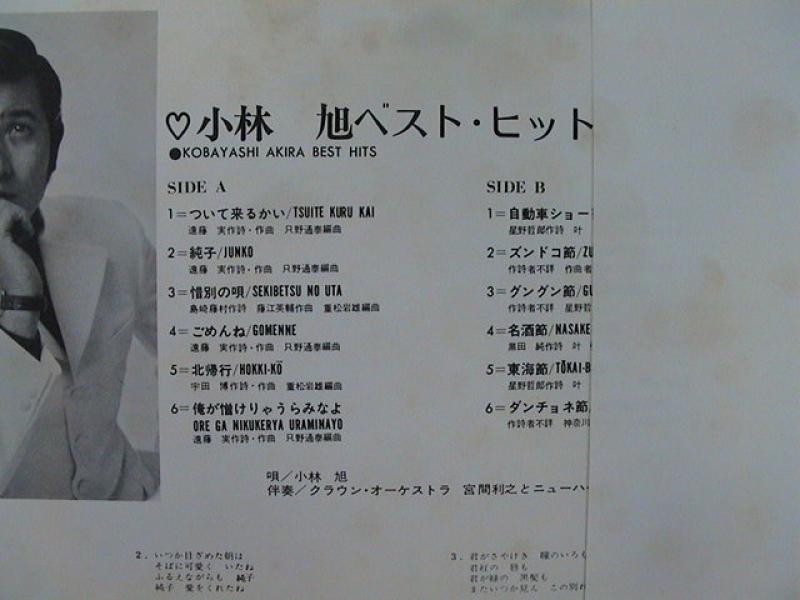 ♡小林 旭ベスト・ヒット
●KOBAYASHI AKIRA BEST HITS
SIDE A
1=ついて来るかい/TSUITE KURU KAI
遠藤 実作詩・作曲 只野通泰編曲
2=純子/JUNKO
遠藤 実作詩・作曲 只野通泰編曲
3=惜別の唄/SEKIBETSU NO UTA
島崎藤村作詩 藤江英輔作曲 重松岩雄編曲
4=ごめんね/GOMENNE
遠藤 実作詩・作曲 只野通泰編曲
5=北帰行/HOKKI-KŌ
宇田 博作詩・作曲 重松岩雄編曲
6=俺が憎けりゃうらみなよ
ORE GA NIKUKERYA URAMINAYO
遠藤 実作詩・作曲 只野通泰編曲
SIDE B
1=自動車ショー
星野哲郎作詩 叶
2=ズンドコ節/ZU
作詩者不詳 作曲者
3=グングン節/GU
作詩者不詳 星野
4=名酒節/NASAKE
黒田 純作詩 叶
5=東海節/TŌKAI-B
星野哲郎作詩 叶
6=ダンチョネ節/
作詩者不詳 神奈川
唄/小林 旭
伴奏/クラウン・オーケストラ 宮間利之とニューハ
2. いつか目ざめた朝は
そばに可愛く いたね
ふるえながらも 純子
純子 愛をくれたね
3. 君がさやけき 瞳のいろも
君紅の 唇も
君が緑の 黒髪も
またいつか見ん この別れ